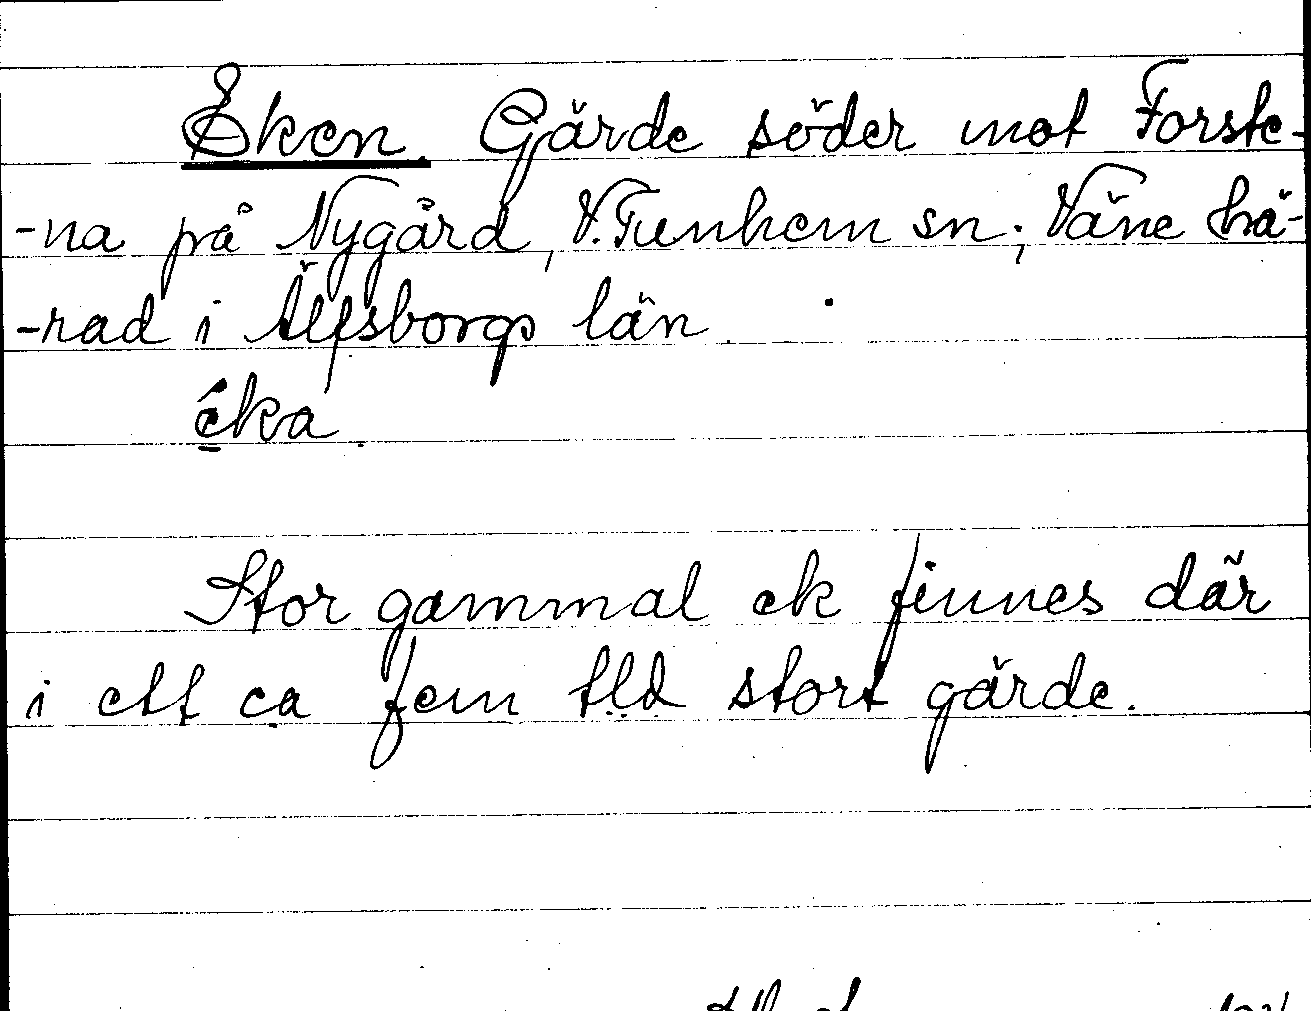 Eken. Gärde söder mot Forste-
-na på Nygård, V. Tunhem sn; Väne hä-
-rad i Älfsborgs län.
éka.
Stor gammal ek finnes där
i ett ca fem tld stort gärde.